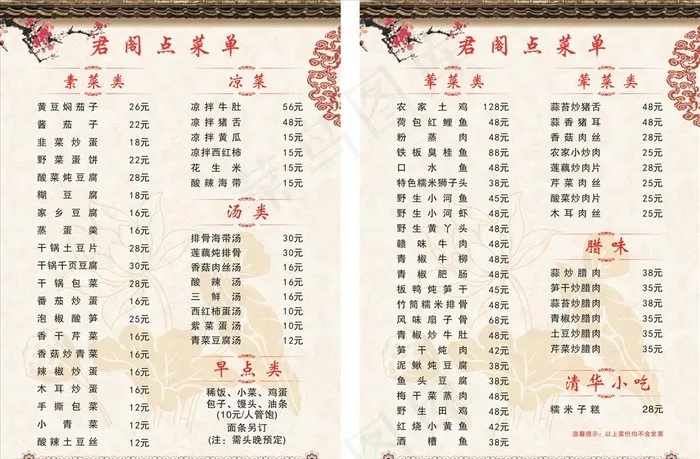 君阁点菜单
素菜类
黄豆焖茄子 26元
酱茄子 22元
韭菜炒蛋 18元
野菜蛋饼 22元
酸菜炖豆腐 22元
糊豆腐 18元
家乡豆腐 18元
蒸蛋羹 16元
干锅土豆片 28元
干锅千页豆腐 30元
干锅包菜 28元
番茄炒蛋 16元
泡椒酸笋 25元
香干芹菜 16元
香菇炒青菜 16元
辣椒炒蛋 16元
木耳炒蛋 16元
手撕包菜 12元
小青菜 12元
酸辣土豆丝 12元
凉菜
凉拌牛肚 56元
凉拌猪舌 48元
凉拌黄瓜 15元
凉拌西红柿 15元
花生米 15元
酸辣海带 15元
汤类
排骨海带汤 30元
莲藕炖排骨 30元
香菇肉丝汤 16元
酸辣汤 16元
三鲜汤 16元
西红柿蛋汤 12元
紫菜蛋汤 12元
青菜豆腐汤 12元
早点类
稀饭、小菜、鸡蛋
包子、馒头、油条
(10元/人管饱)
面条另订
(注：需头晚预定)
君阁点菜单
荤菜类
农家土鸡 128元
荷包红鲤鱼 48元
粉蒸肉 48元
铁板臭桂鱼 68元
口水鱼 48元
特色糯米狮子头 38元
野生小河鱼 45元
野生小河虾 48元
野生黄丫头 48元
赣味牛肉 48元
青椒牛柳 48元
青椒肥肠 48元
板鸭炖笋干 48元
竹筒糯米排骨 48元
风味扇子骨 68元
青椒炒牛肚 48元
笋干炖肉 42元
泥鳅炖豆腐 52元
鱼头豆腐 38元
梅干菜蒸肉 38元
野生田鸡 48元
红烧小黄鱼 42元
酒糟鱼 38元
荤菜类
蒜苔炒猪舌 48元
蒜香猪耳 48元
香菇肉丝 25元
农家小炒肉 25元
莲藕炒肉片 25元
芹菜肉丝 25元
酸菜炒肉片 25元
木耳肉丝 25元
腊味
蒜炒腊肉 38元
笋干炒腊肉 38元
蒜苔炒腊肉 38元
青椒炒腊肉 35元
土豆炒腊肉 35元
芹菜炒腊肉 35元
清华小吃
糯米子糕 28元
温馨提示：以上菜价均不含发票